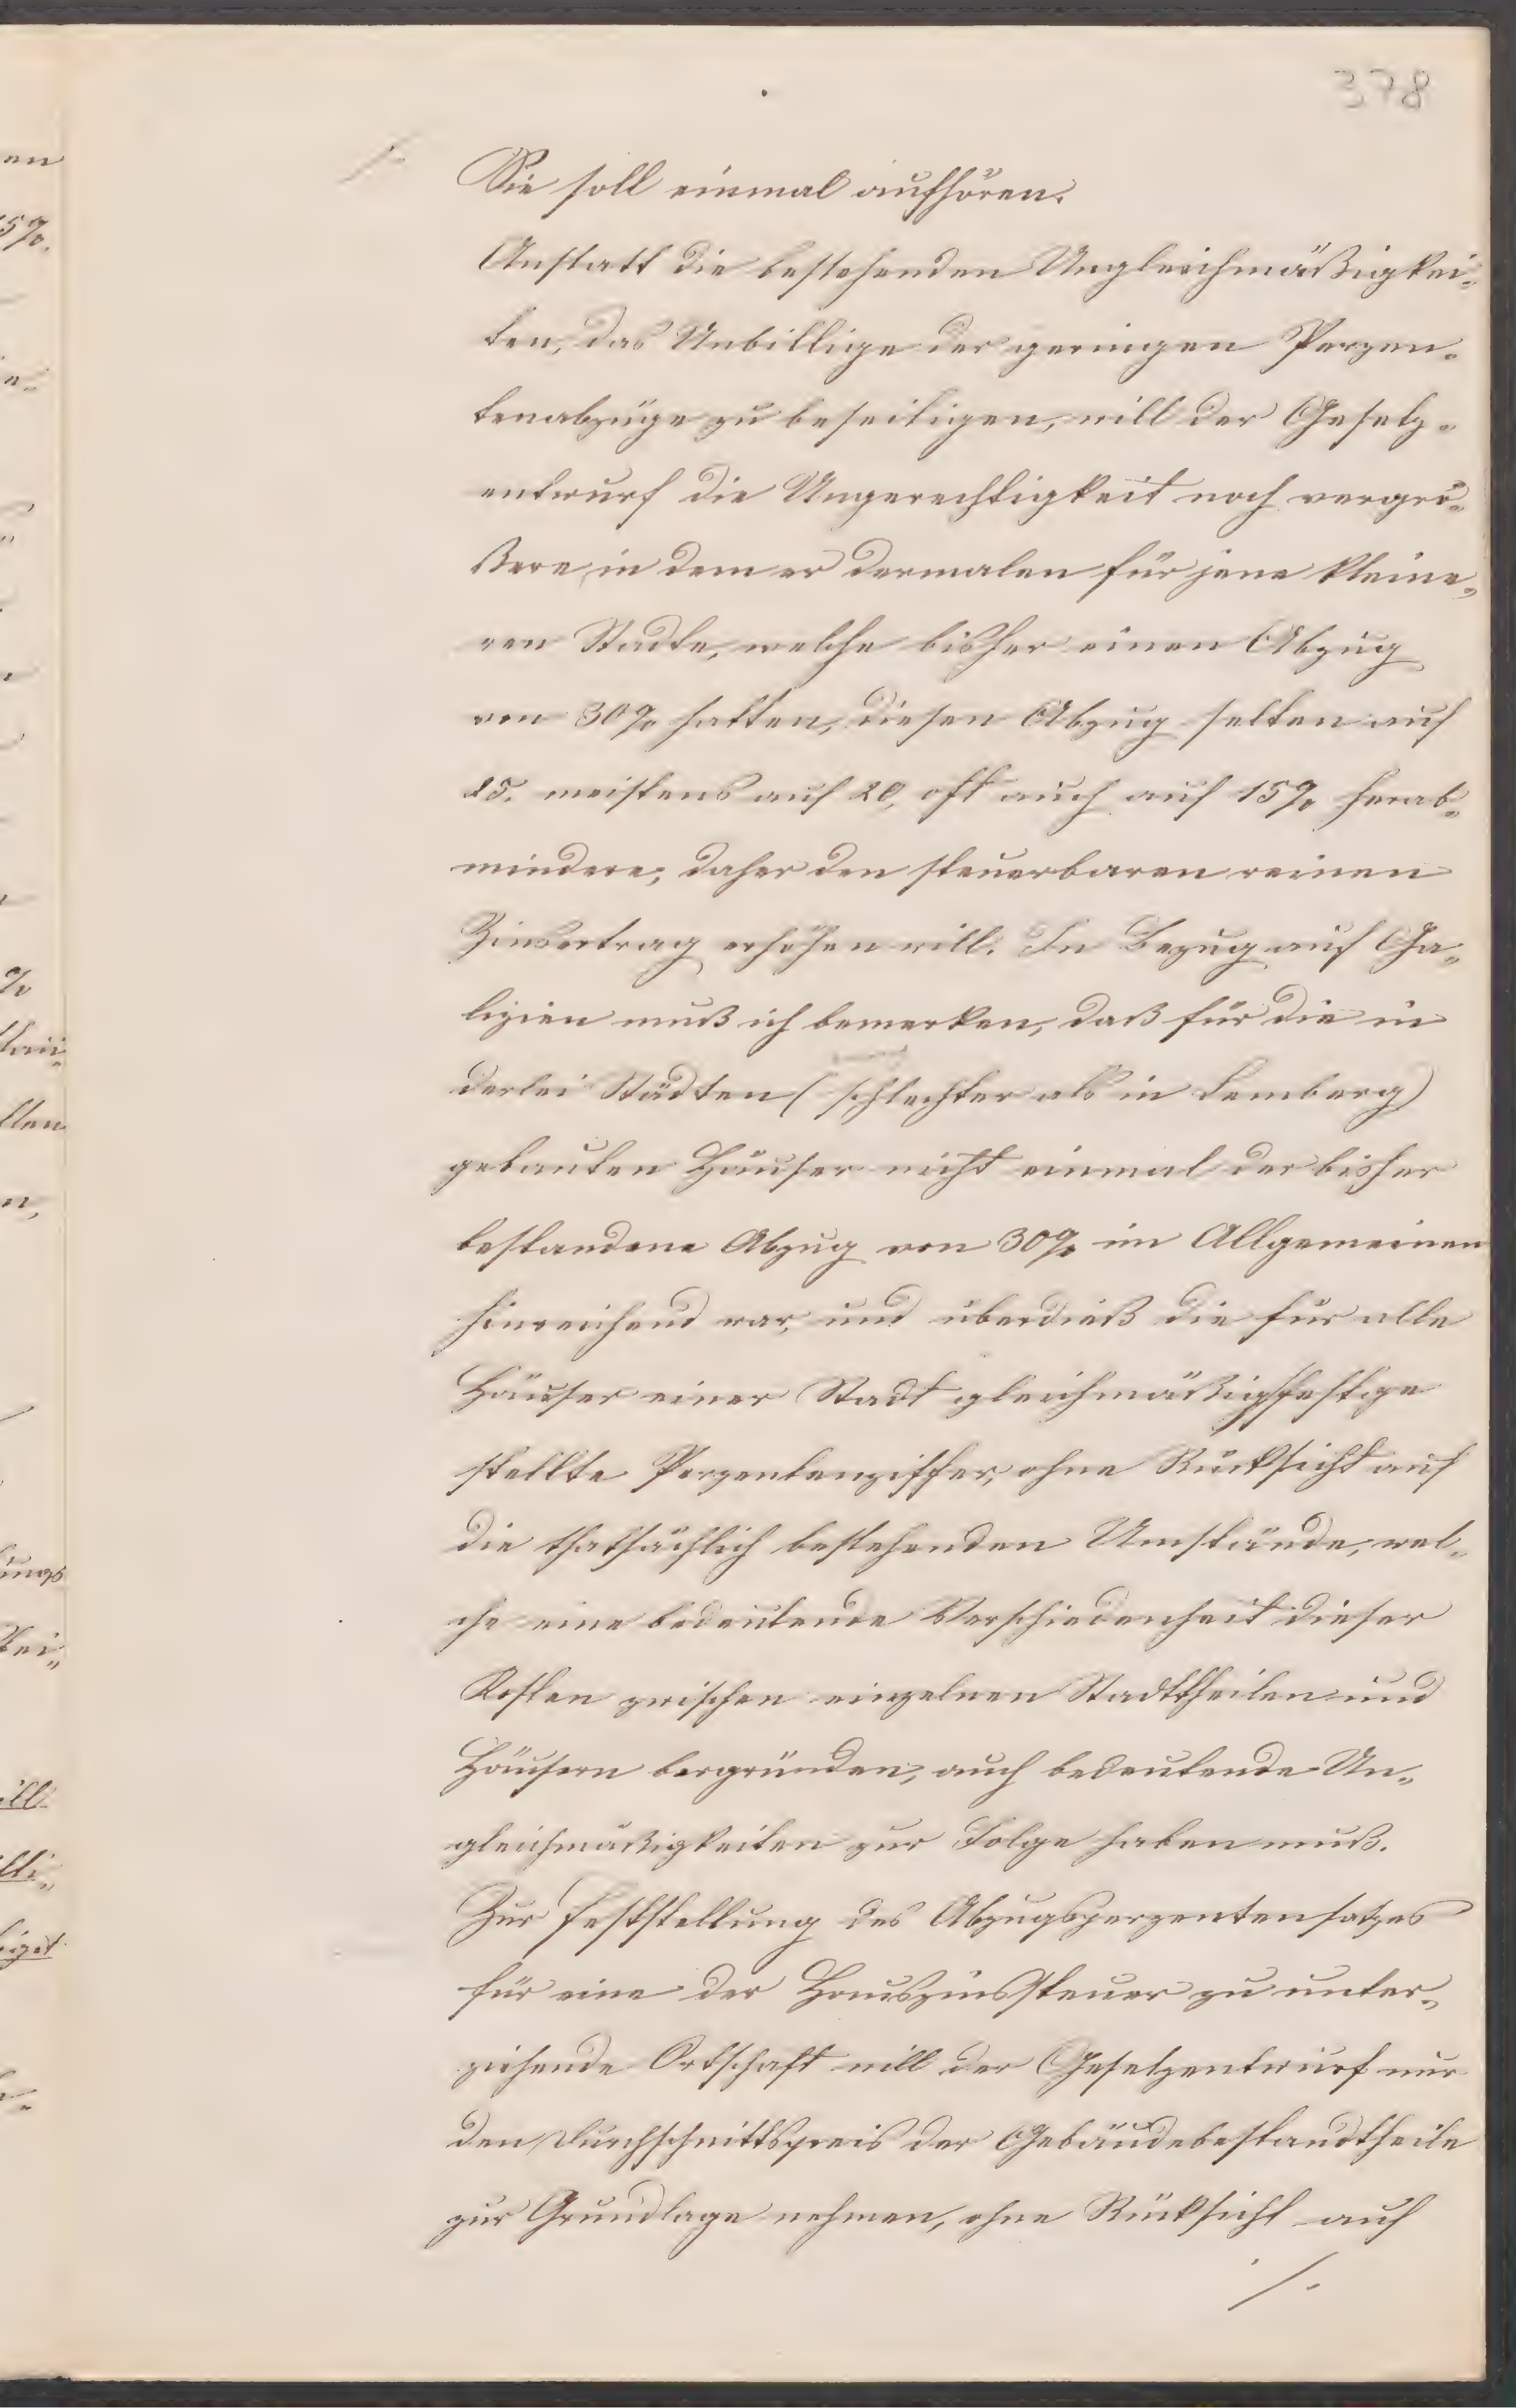 378
Sie soll einmal aufhören.
Anstatt die bestehenden Ungleichmäßigkei-
ten, das Unbillige der geringen Perzen-
tenabzüge zu beseitigen, will der Gesetz-
entwurf die Ungerechtigkeit noch vergrö-
ßern, in dem er dermalen für jene kleine-
ren Städte, welche bisher einen Abzug
von 30% hatten, diesen Abzug selten auf
25. meistens auf 20, oft auch auf 15% herab-
mindern, daher den steuerbaren reinen
Zinsertrag erhöhen will. In Bezug auf Ga-
lizien muß ich bemerken, daß für die in
derlei Städten (schlechter als in Lemberg)
gebauten Häuser nicht einmal der bisher
bestandene Abzug von 30% im Allgemeinen
hinreichend war, und überdieß die für alle
Häuser einer Stadt gleichmäßig festge
stellte Perzentenziffer, ohne Rücksicht auf
die thatsächlich bestehenden Umstände, wel-
che eine bedeutende Verschiedenheit dieser
Kosten zwischen einzelnen Stadttheilen und
Häusern bergründen, auch bedeutende Un-
gleichmäßigkeiten zur Folge haben muß.
Zur Feststellung des Abzugsperzentensatzes
für eine der Hauszinssteuer zu unter-
ziehende Ortschaft will der Gesetzentwurf nur
den Durchschnittspreis der Gebäudebestandtheile
zur Grundlage nehmen, ohne Rücksicht auf
./.